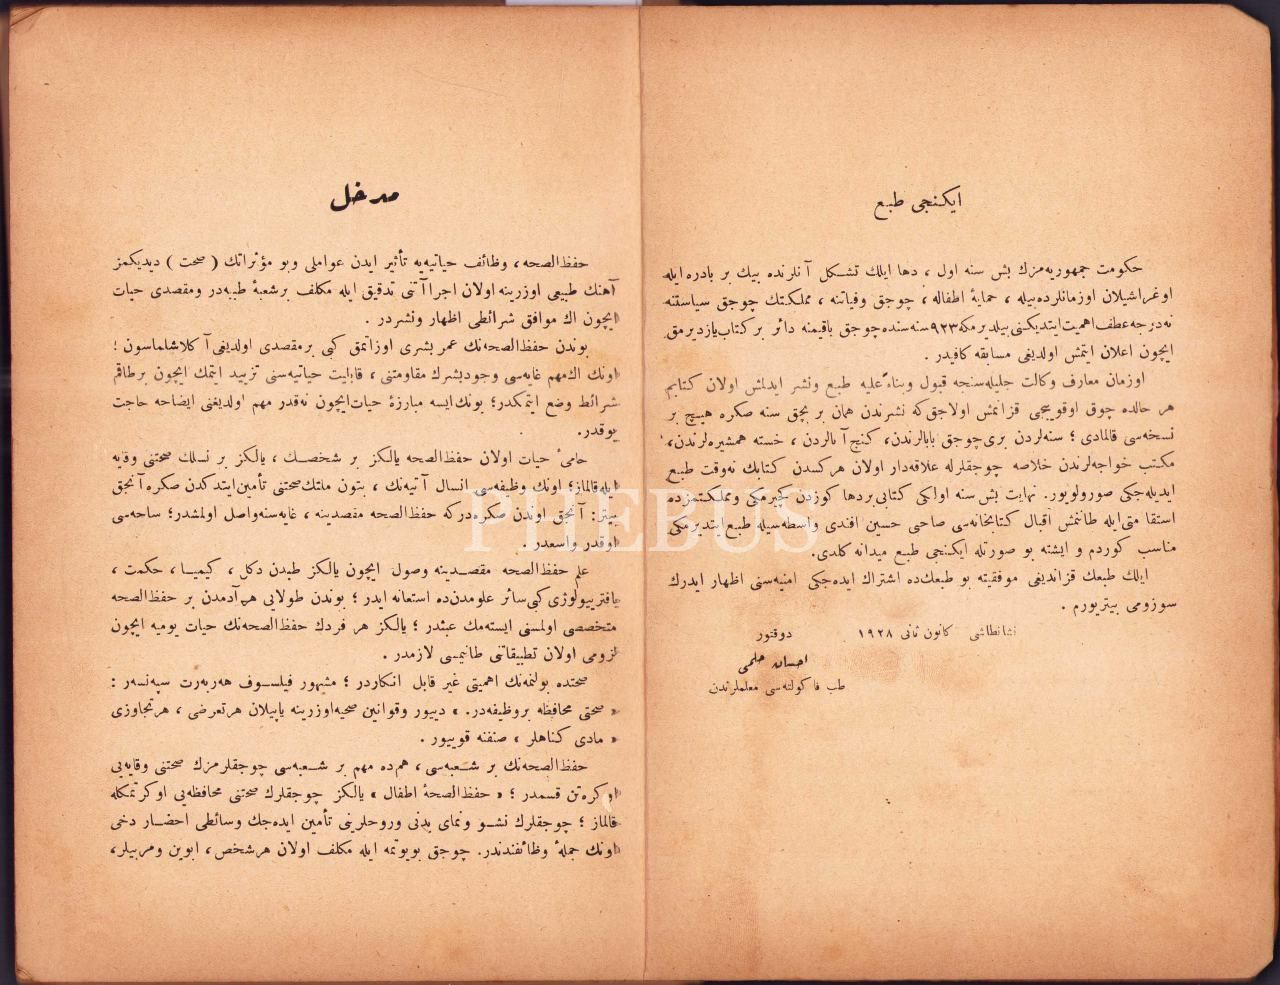 ایكنجی طبع
حكومت جمهوریه‌مزك بش سنه اول ، دها ایلك تشكل آنلرنده بیك بر بادره ایله
اوغراشیلان اوزمانلرده بیله ، حمایهٔ اطفاله ، چوجق وفیاتنه ، مملكتك چوجق سیاستنه
نه‌درجه عطف اهمیت ایتدیكنی بیلدیرمكه ٩٢٣ سنه‌سنده چوجق باقیمنه دائر بر كتاب یازدیرمق
ایچون اعلان ایتمش اولدیغی مسابقه كافیدر .
اوزمان معارف وكالت جلیله‌سنجه قبول وبناءً علیه طبع ونشر ایدلمش اولان كتابم
هر حالده چوق اوقویجی قزانمش اولاجق‌كه نشرندن همان بر بچق سنه صكره هیچ بر
نسخه‌سی قالمادی ؛ سنه‌لردن بری چوجق بابالرندن ، كنج آنالردن ، خسته همشیره‌لرندن ،
مكتب خواجه‌لرندن خلاصه چوجقلرله علاقه‌دار اولان هركسدن كتابك نه‌وقت طبع
ایدیله‌جكی صورولویور. نهایت بش سنه اولكی كتابی بردها كوزدن كچیرمكی ومملكتمزده
استقامتی‌ایله طانمش اقبال كتابخانه‌سی صاحبی حسین افندی واسطه‌سیله طبع ایتدیرمكی
مناسب كوردم و ایشته بو صورتله ایكنجی طبع میدانه كلدی.
ایلك طبعك قزاندیغی موفقیته بو طبعك‌ده اشتراك ایده‌جكی امنیه‌سنی اظهار ایدرك
سوزومی بیتریورم .
نشانطاشی كانون ثانی ١٩٢٨ دوقتور
احسان حلمی
طب فاكولته‌سی معلملرندن
مدخل
حفظ‌الصحه ، وظائف حیاتیه‌یه تأثیر ایدن عواملی وبو مؤثراتك ( صحت ) دیدیكمز
آهنك طبیعی اوزرینه اولان اجراآتنی تدقیق ایله مكلف بر شعبهٔ طبیه‌در ومقصدی حیات
ایچون اك موافق شرائطی اظهار ونشردر .
بوندن حفظ‌الصحه‌نك عمر بشری اوزاتمق كبی بر مقصدی اولدیغی آكلاشلماسون !
اونك اك مهم غایه‌سی وجود بشرك مقاومتنی ، قابلیت حیاتیه‌سنی تزیید ایتمك ایچون برطاقم
شرائط وضع ایتمكدر ؛ بونك‌ایسه مبارزهٔ حیات‌ایچون نه‌قدر مهم اولدیغنی ایضاحه حاجت
یوقدر.
حامیٔ حیات اولان حفظ‌الصحه یالكز بر شخصك ، یالكز بر نسلك صحتنی وقایه
ایله قالماز ؛ اونك وظیفه‌سی انسال آتیه‌نك ، بتون ملتك صحتنی تأمین ایتدكدن صكره آنجق
بیتر: آنجق اوندن صكره‌دركه حفظ‌الصحه مقصدینه ، غایه‌سنه واصل اولمشدر ؛ ساحه‌سی
اوقدر واسعدر .
علم حفظ‌الصحه مقصدینه وصول ایچون یالكز طبدن دكل ، كیمیا ، حكمت ،
باقتریولوژی كبی سائر علومدن‌ده استعانه ایدر ؛ بوندن طولایی هر آدمدن بر حفظ‌الصحه
متخصصی اولمسنی ایسته‌مك عبثدر ؛ یالكز هر فردك حفظ‌الصحه‌نك حیات یومیه ایچون
لزومی اولان تطبیقاتنی طانیمسی لازمدر .
صحتده بولنمه‌نك اهمیتی غیر قابل انكاردر ؛ مشهور فیلسوف هه‌ربه‌رت سپه‌نسه‌ر :
« صحتی محافظه بر وظیفه‌در. » دییور وقوانین صحیه‌اوزرینه یاپیلان هر تعرضی ، هر تجاوزی
« مادی كناهلر » صنفنه قوییور .
حفظ‌الصحه‌نك بر شعبه‌سی ، هم‌ده مهم بر شعبه‌سی چوجقلرمزك صحتنی وقایه‌یی
اوكره‌تن قسمدر ؛ « حفظ‌الصحهٔ اطفال » یالكز چوجقلرك صحتنی محافظه‌یی اوكرتمكله
قالماز ؛ چوجقلرك نشو ونمای بدنی وروحلرینی تأمین ایده‌جك وسائطی احضار دخی
اونك جملهٔ وظائفندندر. چوجق بویوتمه ایله مكلف اولان هرشخص ، ابوین ومربیلر ،
PHEBUS